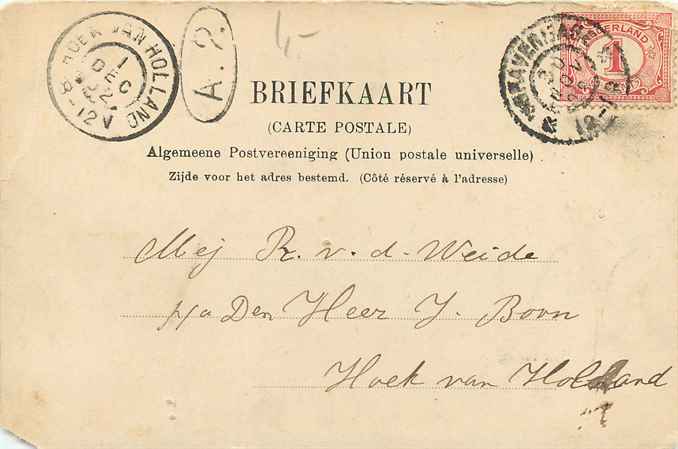 HOEK VAN HOLLAND
1
DEC
8-12V
A.2.
4,-
'S GRAVENHAGE
NEDERLAND
1
BRIEFKAART
(CARTE POSTALE)
Algemeene Postvereeniging (Union postale universelle)
Zijde voor het adres bestemd. (Côté réservé à l'adresse)
Mej R. v. d. Weide
p/a Den Heer J. Boon
Hoek van Holland